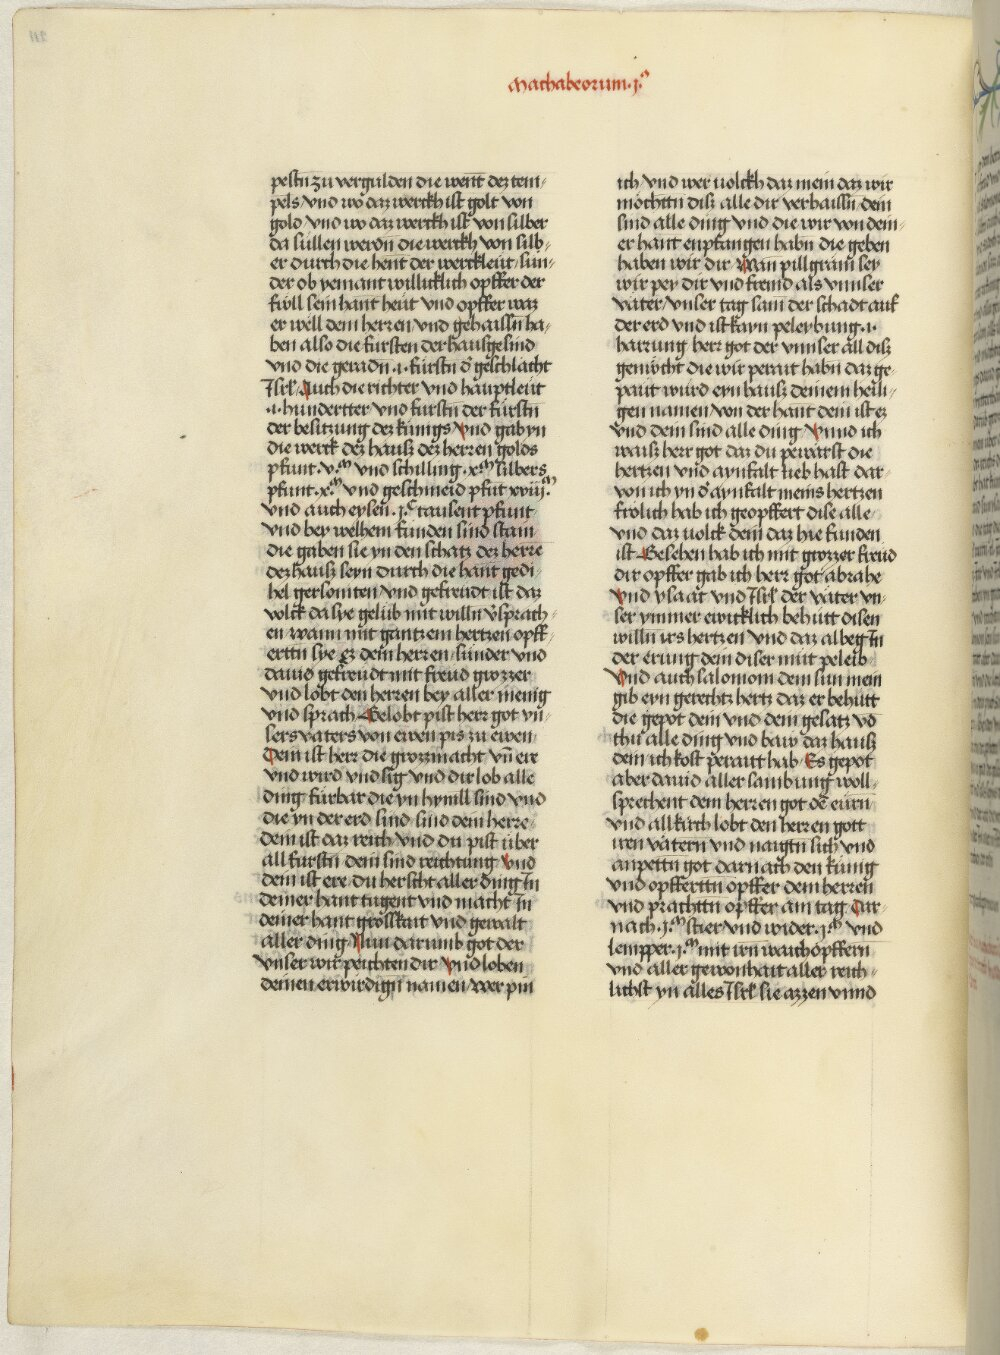 Machabeorum .j.o
pestn zu vergulden die went dez tem/
pels vnd wo daz werckh ist golt von
gold vnd wo daz werckh ist von silber
da sullen werdn die werckh von silb/
er durch die hent der werckleut sun/
der ob yemant willicklich opffer der
fwll sein hant hewt vnd opffer waz
er well dem herren vnd gehaissn ha/
ben also die fursten der hausgesind
vnd die geradn .i. furstn d' geschlacht
Isrl Auch die richter vnd hauptleut
.i. hundertter vnd furstn der furstn
der besitzung dez kunigs Vnd gab yn
die werck dez hausz dez herren golds
pfunt .v.m vnd schilling .x.m silbers
pfunt .x.m vnd geschmeid pfut xviij.m
vnd auch eysen .j.c tausent pfunt
vnd bey welhem funden sind stain
die gaben sie yn den schatz dez herre
dez hausz seyn durch die hant gedi/
hel gersomten vnd gefreudt ist daz
volck da sye gelub mit willn v'sprach/
en wann mit gantzem hertzen opff/
erttn sye Ez dem herren sunder vnd
dauid gefreudt mit freud grozzer
vnd lobt den herren bey aller menig
vnd sprach Gelobt pist herr got vn/
sers vaters von ewen pis zu ewen
Dein ist herr die grozzmacht vn ere
vnd wird vnd sig vnd dir lob alle
ding furbar die yn hymll sind vnd
die yn der erd sind sind dein herre
dein ist daz reich vnd du pist uber
all furstn dein sind reichtung Vnd
dein ist ere du herscht aller ding In
deiner hant tugent vnd macht In
deiner hant grosskait vnd gewalt
aller ding Nun darumb got der
vnser wir peichten dir Vnd loben
deinen erwirdign namen wer pin
ich vnd wer volckh daz mein daz wir
mochttn disz alle dir verhaissn dein
sind alle ding vnd die wir von dein/
er hant enpfangen habn die geben
haben wir dir Wan pillgram sey
wir pey dir vnd fremd als vnnser
vater vnser tag sam der schadt auf
der erd vnd ist kayn peleybung .i.
harrung herr got der vnnser all disz
gemocht die wir perait habn daz ge/
paut wurd eyn hausz deinem heili/
gen namen von der hant dein ist ez
vnd dein sind alle ding Vnnd ich
waisz herr got daz du pewarst die
hertzen vnd aynfalt lieb hast dar/
von ich yn d' aynfalt meins hertzen
frolich hab ich geopffert dise alle
vnd daz volck dein daz hie funden
ist Gesehen hab ich mit grozzer freud
dir opffer gab ich herr got abrahe
Vnd ysaac vnd Isrl der vater vn/
ser ymmer ewicklich behutt disen
willn irs hertzen vnd daz albeg In
der erung dein diser mut peleib
Vnd auch salomom dem sun mein
gib eyn gerechtz hertz daz er behutt
die gepot dein vnd dem gesatz vo
thu alle ding vnd baw daz hausz
dem ich kost peraitt hab Es gepot
aber dauid aller sambung woll/
sprechent dem herren got de eurn
vnd all kirch lobt den herren gott
iren vatern vnd naigtn sich vnd
anpettn got darnach den kunig
vnd opfferttn opffer dem herren
vnd prachttn opffer am tag Dar/
nach .j.m stier vnd wider .j.m vnd
lempper .j.m mit irn waichopffern
vnd aller gewonhait aller reich/
lichst yn alles Isrl sie azzen vnnd